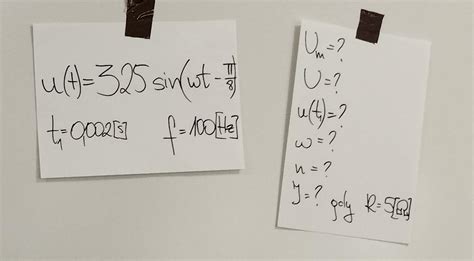 u(t)=325 sin(wt - π/8)
t₁=0,002[s] f=100[Hz]
Um=?
U=?
u(t₁)=?
w=?
n=?
I=? gdy R=5[Ω]